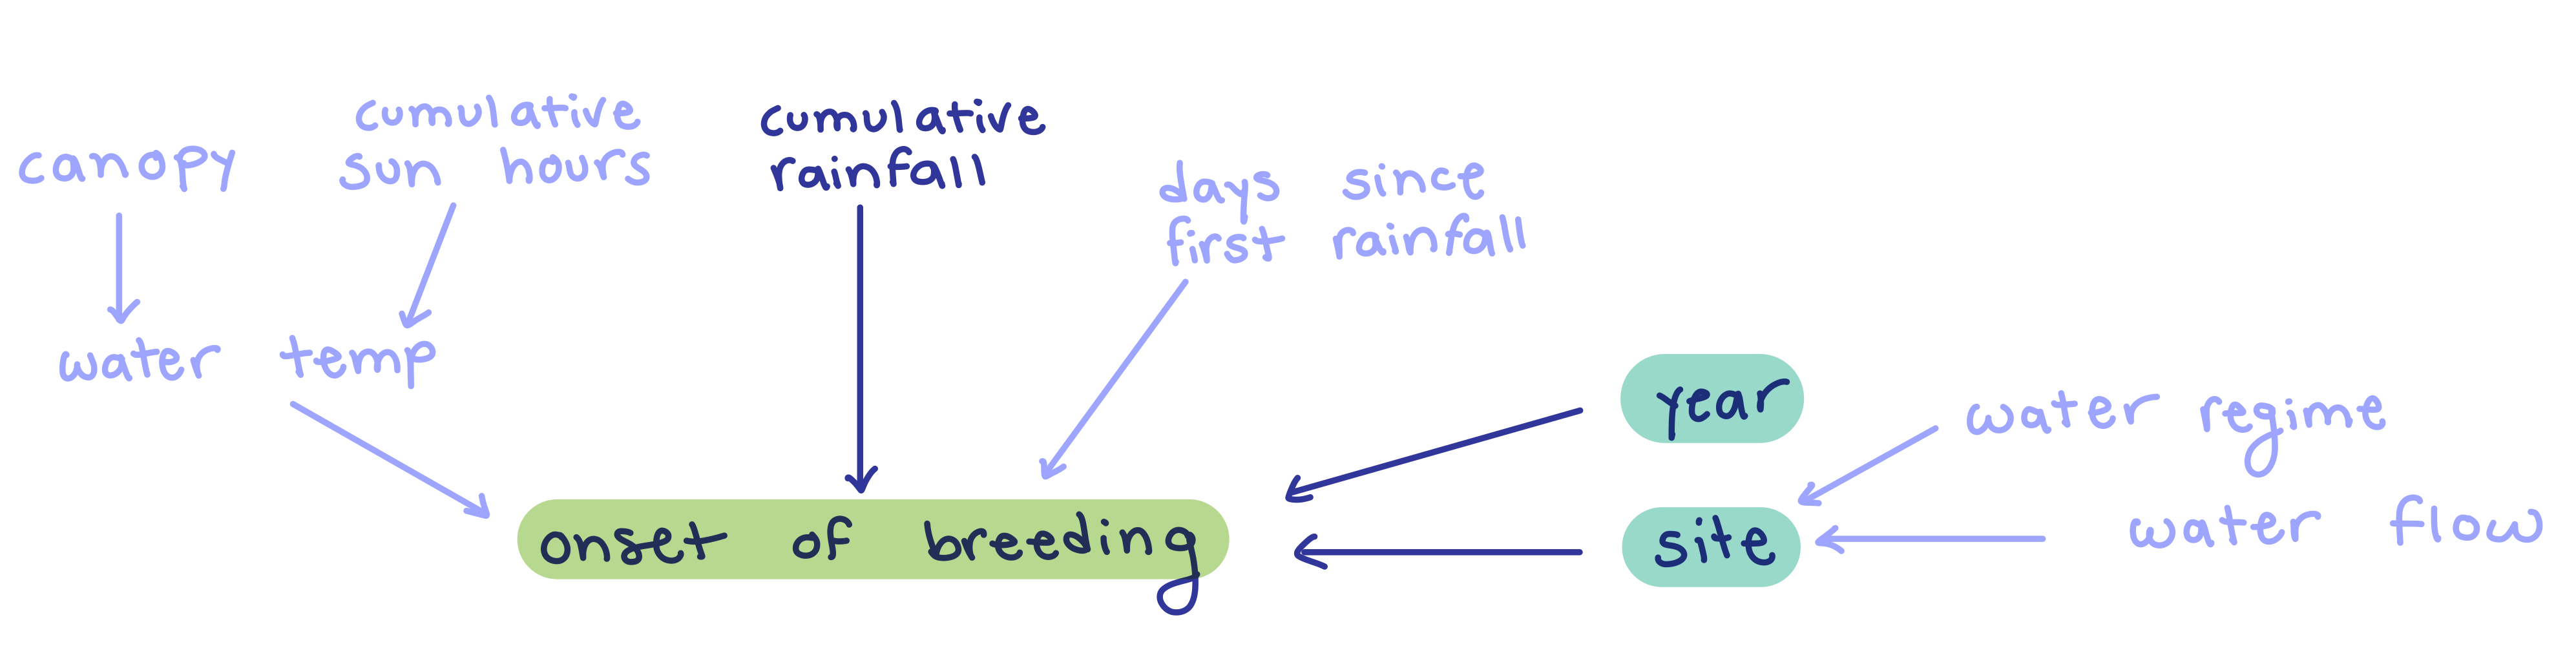 canopy
cumulative
sun hours
cumulative
rainfall
days since
first rainfall
water temp
year
water regime
onset of breeding
site
water flow